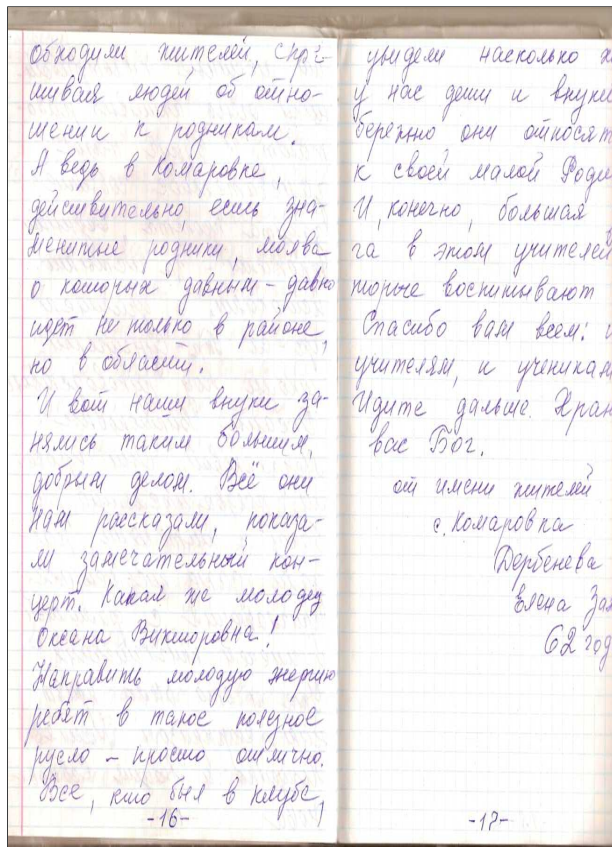 обходили жителей, спра-
шивая людей об отно-
шении к родникам.
А ведь в Комаровке,
действительно, есть зна-
менитые родники, молва
о которых давным-давно
идет не только в районе,
но в области.
И вот наши внуки за-
нялись таким большим,
добрым делом. Всё они
нам рассказали, показа-
ли замечательный кон-
церт. Какая же молодец
Оксана Викторовна!
Направить молодую энергию
ребят в такое полезное
русло – просто отлично.
Все, кто был в клубе,
-16-
увидели насколько
у нас дети и внуки
бережно они относят
к своей малой Роди
И, конечно, большая
га в этом учителей
торые воспитывают
Спасибо вам всем: и
учителям, и ученикам
Идите дальше. Хран
вас Бог.
от имени жителей
с. Комаровка
Дербенева
Елена Зах
62 год
-17-